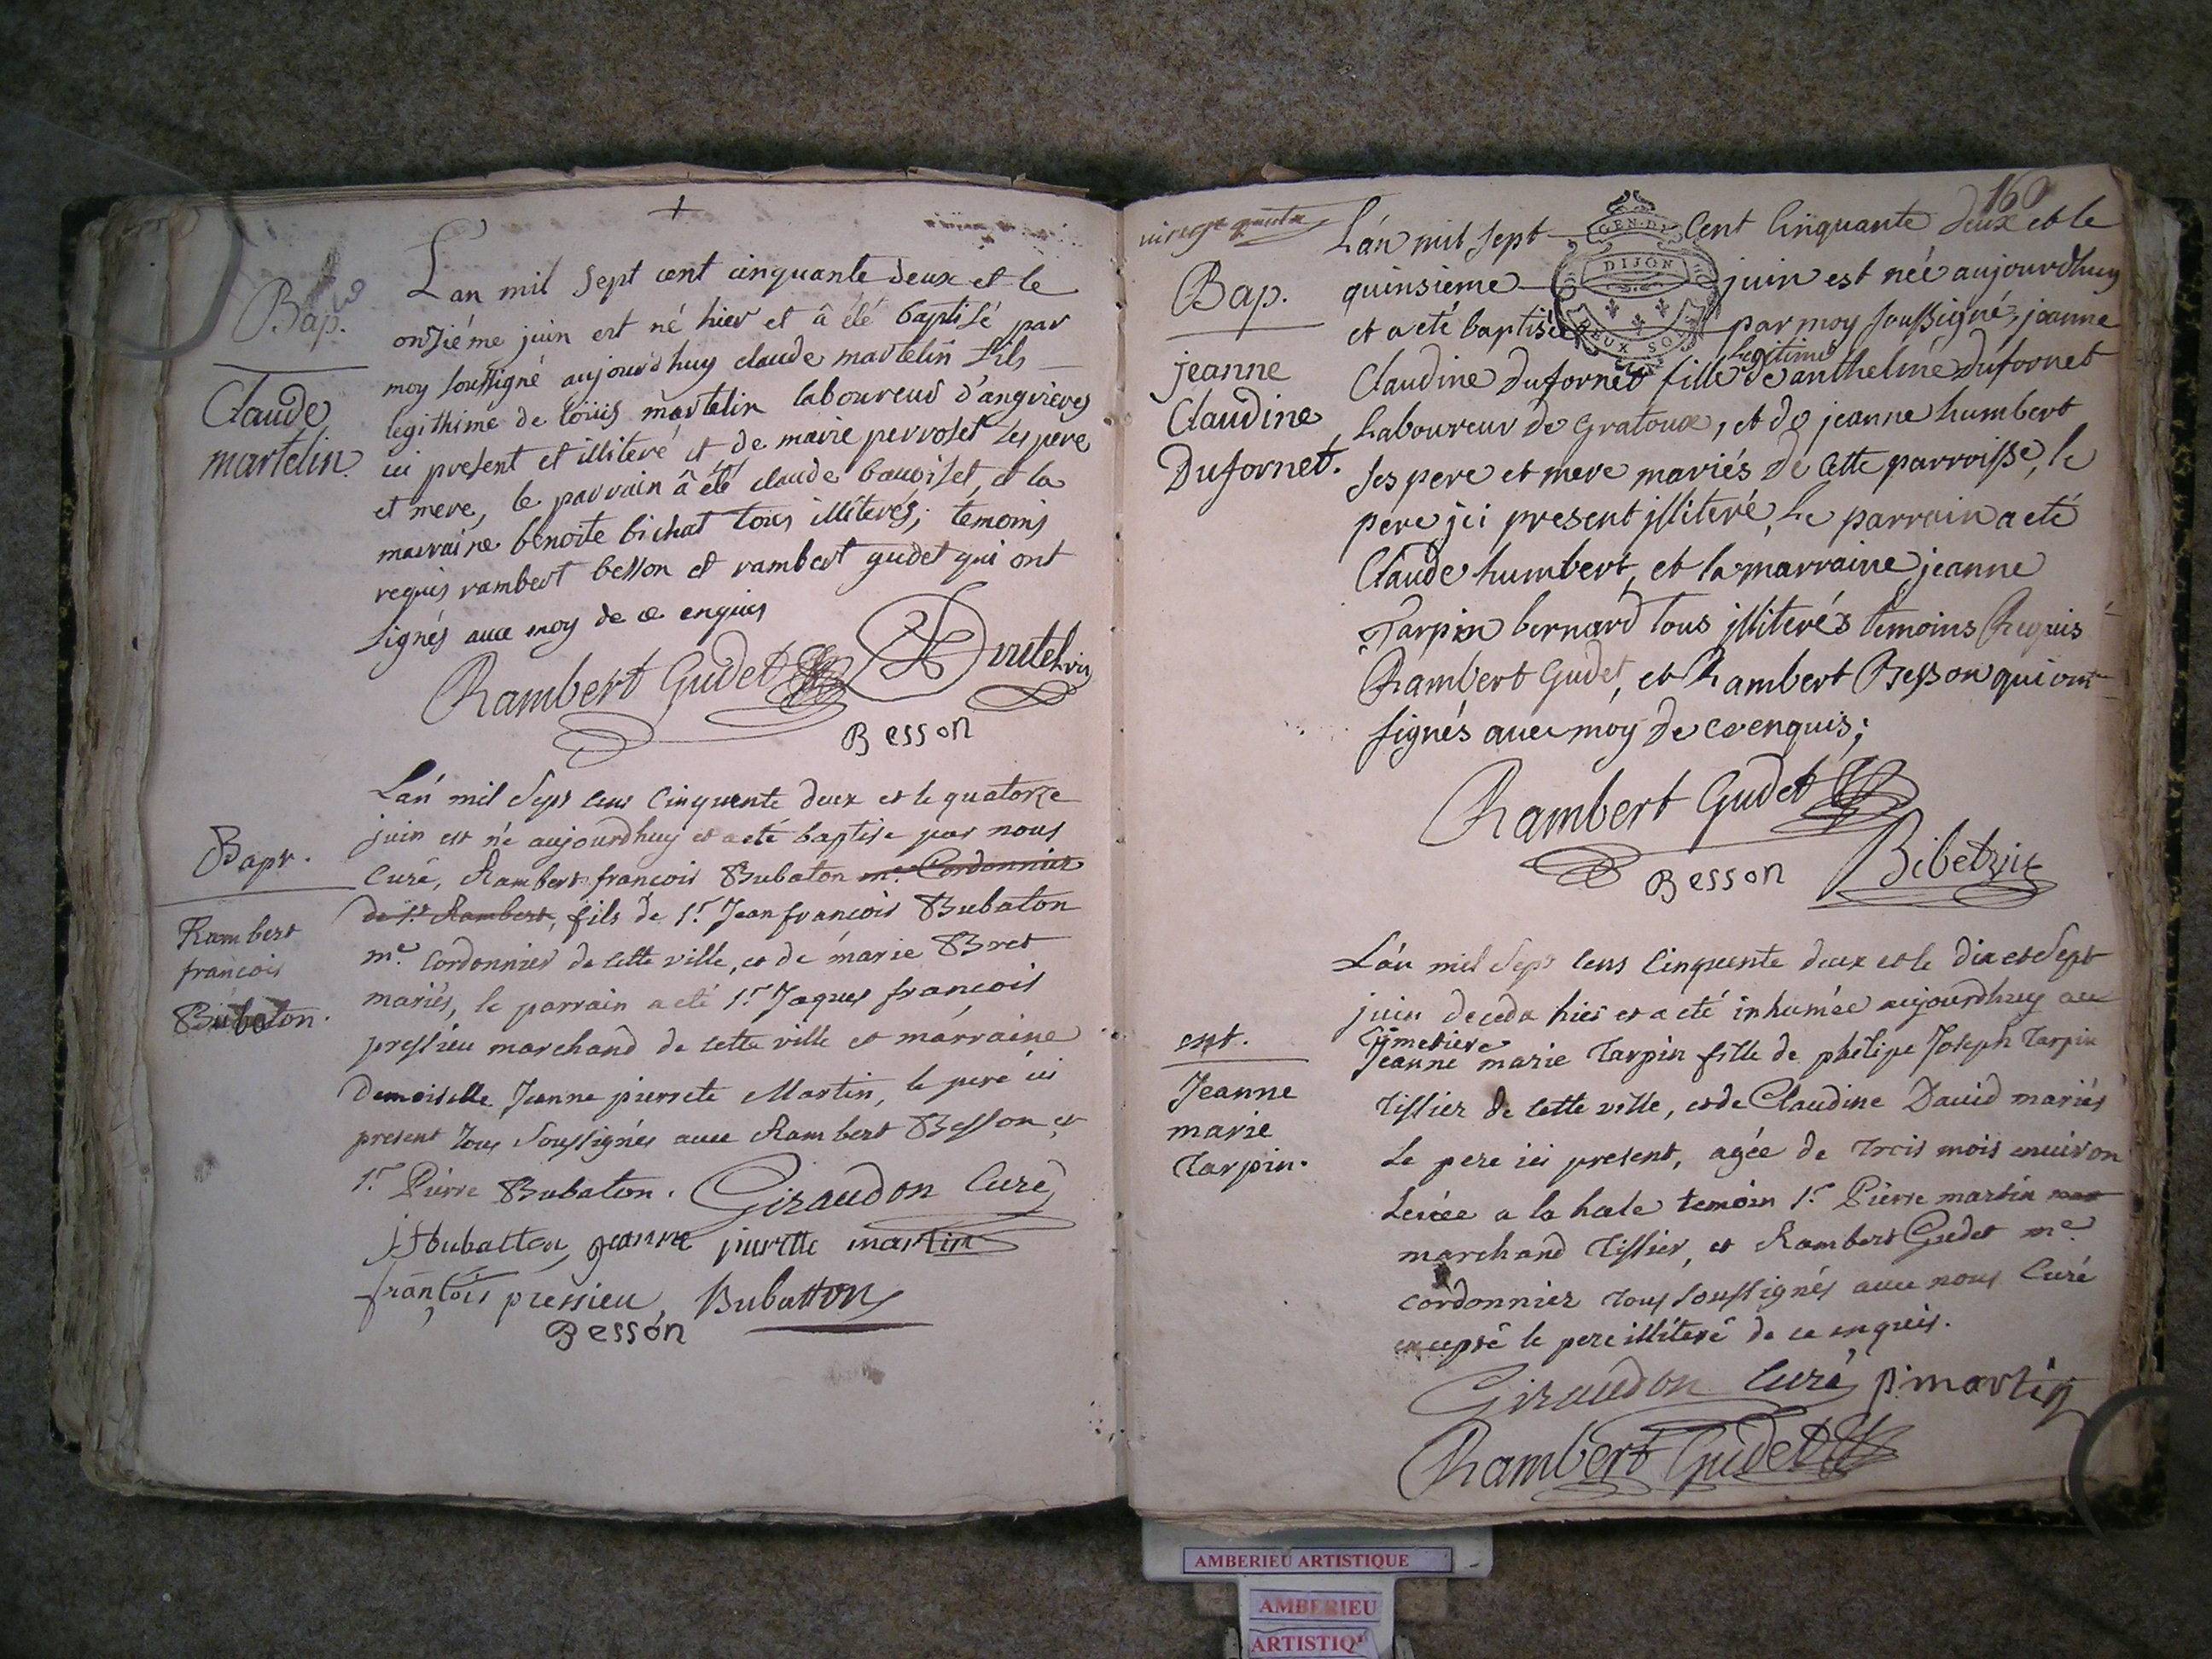 Bap.
Claude
martelin.
L'an mil Sept cent cinquante deux et le
onzième juin est né hier et â été baptisé par
moy soussigné aujourd'huy claude martelin fils
legithime de loüis martelin laboureur d'angrieres
ici present et illiteré et de marie perroset ses pere
et mere, le parrain â été claude bauoiset, et la
marraine benoite bichat tous illiterés; temoins
requis rambert besson et rambert gudet qui ont
signés avec moy de ce enquis
Rambert Gudet
Besson
Bapt.
Rambert
francois
Bubaton.
L'an mil Sept cens Cinquante deux et le quatorze
juin est né aujourdhuy et a eté baptise par nous
Curé, Rambert francois Bubaton me. Cordonnier
de St. Rambert, fils de Sr. Jean francois Bubaton
me. Cordonnier de cette ville, et de marie Bret
mariés, le parrain a eté Sr. Jaques francois
pressieu marchand de cette ville et marraine
Demoiselle Jeanne pierrete Martin, le pere ici
present tous Soussignés avec Rambert Besson et
Sr. Pierre Bubaton. Giraudon Curé
jf bubatton jeanne pierette martin
francois pressieu Bubatton
Besson
160
Bap.
jeanne
Claudine
Dufornet.
L'an mil sept Cent Cinquante deux et le
quinsieme juin est née aujourdhuy
et a eté baptisée par moy soussigné, jeanne
legitime
Claudine Dufornet fille de anthelme Dufornet
Laboureur de Gratoux, et de jeanne humbert
ses pere et mere mariés de Cette parroisse, le
pere jci present jlliteré, Le parrain a eté
Claude humbert, et la marraine jeanne
Tarpin bernard tous jlliterés temoins Requis
Rambert Gudet, et Rambert Besson qui ont
signés avec moy de ce enquis;
GEN. DE
DIJON
DEUX SOLS
Rambert Gudet
Besson
ent.
Jeanne
marie
Tarpin.
L'an mil Sept cens Cinquante deux et le dix et Sept
juin deceda hier et a eté inhumée aujourdhuy au
Cimetiere
Jeanne marie Tarpin fille de phelipe Joseph Tarpin
Tissier de cette ville, et de Claudine David mariés
Le pere ici present, agée de trois mois environ
Levée a la hale temoin Sr. Pierre martin mar
marchand Tissier, et Rambert Gudet me.
Cordonnier tous soussignés avec nous Curé
excepté le pere illiteré de ce enquis.
Giraudon Curé p. martin
Rambert Gudet
AMBERIEU ARTISTIQUE
AMBERIEU
ARTISTIQ